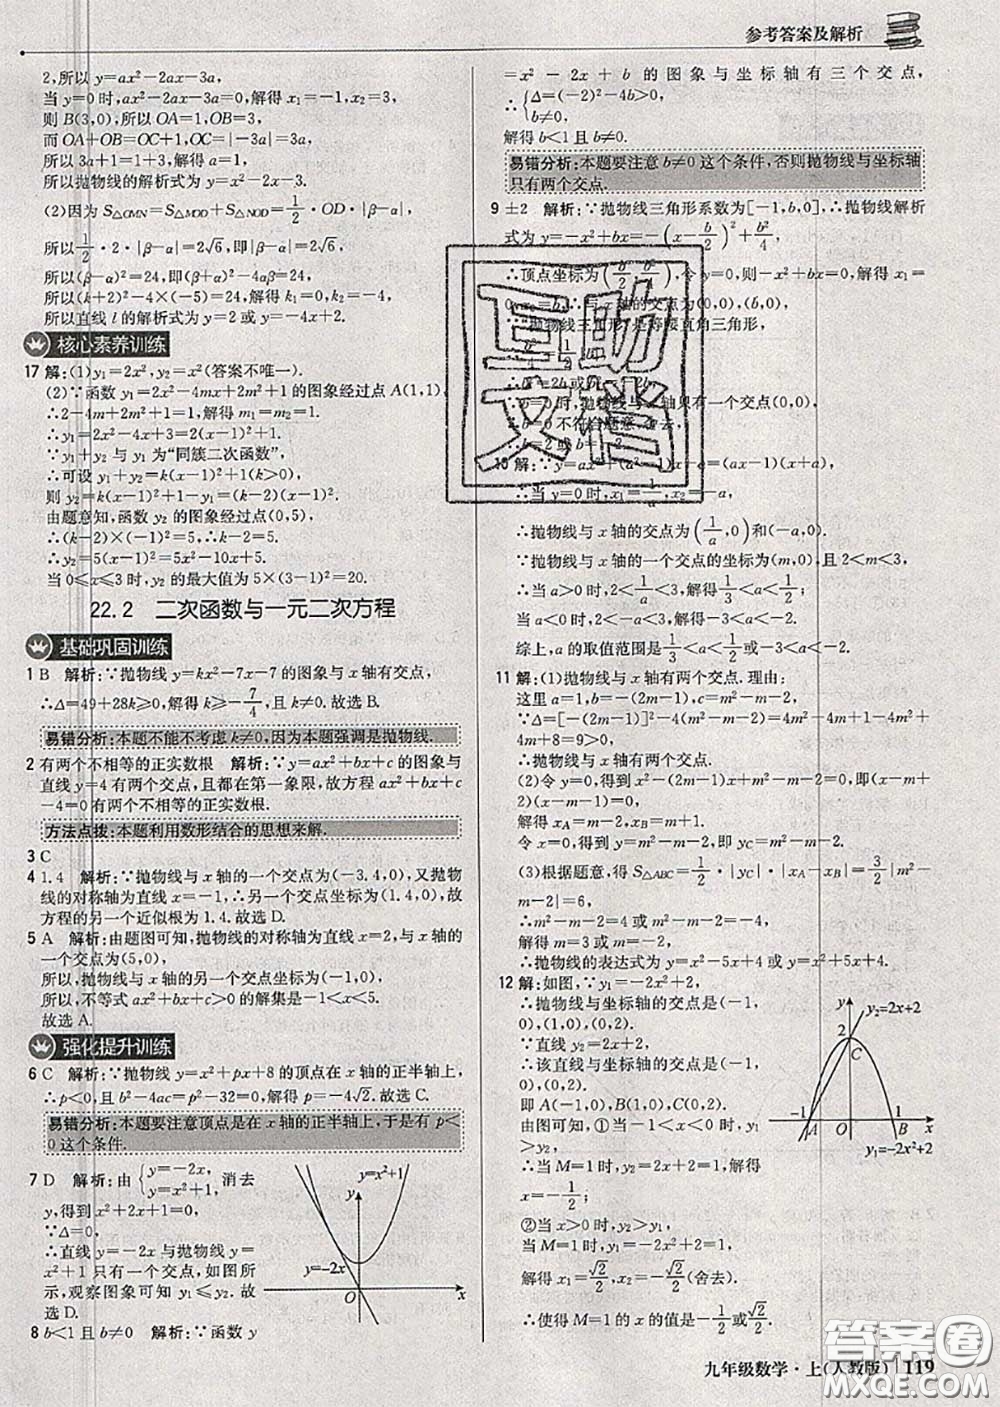 参考答案及解析
2,所以 y=ax²-2ax-3a,
当 y=0时,ax²-2ax-3a=0,解得 x₁=-1,x₂=3,
则 B(3,0),所以 OA=1,OB=3,
而 OA+OB=OC+1,OC=|-3a|=3a,
所以 3a+1=1+3,解得 a=1,
所以抛物线的解析式为 y=x²-2x-3.
(2)因为 S△OMN=S△MOD+S△NOD=1/2·OD·|β-α|,
所以 1/2·2·|β-α|=2√6,即|β-α|=2√6,
所以(β-α)²=24,即(β+α)²-4αβ=24,
所以(k+2)²-4×(-5)=24,解得 k₁=0,k₂=-4,
所以直线 l 的解析式为 y=2 或 y=-4x+2.
核心素养训练
17 解:(1)y₁=2x²,y₂=x²(答案不唯一).
(2)∵函数 y₁=2x²-4mx+2m²+1 的图象经过点 A(1,1),
∴2-4m+2m²+1=1,解得 m₁=m₂=1.
∴y₁=2x²-4x+3=2(x-1)²+1.
∵y₁+y₂ 与 y₁ 为“同簇二次函数”,
∴可设 y₁+y₂=k(x-1)²+1(k>0),
则 y₂=k(x-1)²+1-y₁=(k-2)(x-1)².
由题意知,函数 y₂ 的图象经过点(0,5),
∴(k-2)×(-1)²=5,∴k-2=5.
∴y₂=5(x-1)²=5x²-10x+5.
当 0≤x≤3 时,y₂ 的最大值为 5×(3-1)²=20.
22.2 二次函数与一元二次方程
基础巩固训练
1 B 解析:∵抛物线 y=kx²-7x-7 的图象与 x 轴有交点,
∴Δ=49+28k≥0,解得 k≥-7/4,且 k≠0.故选 B.
易错分析:本题不能不考虑 k≠0,因为本题强调是抛物线.
2 有两个不相等的正实数根 解析:∵y=ax²+bx+c 的图象与
直线 y=4 有两个交点,且都在第一象限,故方程 ax²+bx+c
-4=0 有两个不相等的正实数根.
方法点拨:本题利用数形结合的思想来解.
3 C
4 1.4 解析:∵抛物线与 x 轴的一个交点为(-3.4,0),又抛物
线的对称轴为直线 x=-1,∴另一个交点坐标为(1.4,0),故
方程的另一个近似根为 1.4.故选 D.
5 A 解析:由题图可知,抛物线的对称轴为直线 x=2,与 x 轴的
一个交点为(5,0),
所以,抛物线与 x 轴的另一个交点坐标为(-1,0),
所以,不等式 ax²+bx+c>0 的解集是-1<x<5.
故选 A.
强化提升训练
6 C 解析:∵抛物线 y=x²+px+8 的顶点在 x 轴的正半轴上,
∴p<0,且 b²-4ac=p²-32=0,解得 p=-4√2.故选 C.
易错分析:本题要注意顶点是在 x 轴的正半轴上,于是有 p<
0 这个条件.
7 D 解析:由 { y=-2x, y=x²+1, 消去
y,得到 x²+2x+1=0,
∵Δ=0,
∴直线 y=-2x 与抛物线 y=
x²+1 只有一个交点,如图所
示,观察图象可知 y₁≤y₂.故
选 D.
y y=x²+1
y=-2x
O x
8 b<1 且 b≠0 解析:∵函数 y
=x²-2x+b 的图象与坐标轴有三个交点,
∴{ Δ=(-2)²-4b>0, b≠0,
解得 b<1 且 b≠0.
易错分析:本题要注意 b≠0 这个条件,否则抛物线与坐标轴
只有两个交点.
9 ±2 解析:∵抛物线三角形系数为[-1,b,0],∴抛物线解析
式为 y=-x²+bx=-(x-b/2)²+b²/4,
∴顶点坐标为(b/2,b²/4),令 y=0,则-x²+bx=0,解得 x₁=
0,x₂=b,∴与 x 轴的交点为(0,0),(b,0),
∵抛物线三角形是等腰直角三角形,
∴b=2 或 b=-2.
10 解:∵y=ax²+(a²-1)x-a=(ax-1)(x+a),
∴当 y=0 时,x₁=1/a,x₂=-a,
∴抛物线与 x 轴的交点为(1/a,0)和(-a,0).
∵抛物线与 x 轴的一个交点的坐标为(m,0),且 2<m<3,
∴当 a>0 时,2<1/a<3,解得 1/3<a<1/2;
当 a<0 时,2<-a<3,解得-3<a<-2.
综上,a 的取值范围是 1/3<a<1/2或-3<a<-2.
11 解:(1)抛物线与 x 轴有两个交点.理由:
这里 a=1,b=-(2m-1),c=m²-m-2,
∵Δ=[-(2m-1)]²-4(m²-m-2)=4m²-4m+1-4m²+
4m+8=9>0,
∴抛物线与 x 轴有两个交点.
(2)令 y=0,得到 x²-(2m-1)x+m²-m-2=0,即(x-m-
2)(x-m+1)=0,
解得 xA=m-2,xB=m+1.
令 x=0,得到 y=m²-m-2,即 yC=m²-m-2.
(3)根据题意,得 S△ABC=1/2·|yC|·|xA-xB|=3/2|m²-
m-2|=6,
∴m²-m-2=4 或 m²-m-2=-4.
解得 m=3 或 m=-2,
∴抛物线的表达式为 y=x²-5x+4 或 y=x²+5x+4.
12 解:如图,∵y₁=-2x²+2,
∴抛物线与坐标轴的交点是(-1,
0),(1,0),(0,2).
∵直线 y₂=2x+2,
∴该直线与坐标轴的交点是(-1,
0),(0,2).
即 A(-1,0),B(1,0),C(0,2).
由图可知,①当-1<x<0 时,y₁
>y₂,
∴当 M=1 时,y₂=1,即 2x+2=1,
解得 x=-1/2;
②当 x>0 时,y₂>y₁,
当 M=1 时,y₁=1,即-2x²+2=1,
解得 x₁=√2/2,x₂=-√2/2(舍去).
∴使得 M=1 的 x 的值是-1/2或√2/2.
y y₂=2x+2
2
C
-1 1
A O B x
y₁=-2x²+2
互助
文档
答案圈
MXQE.COM
九年级数学·上(人教版) 119